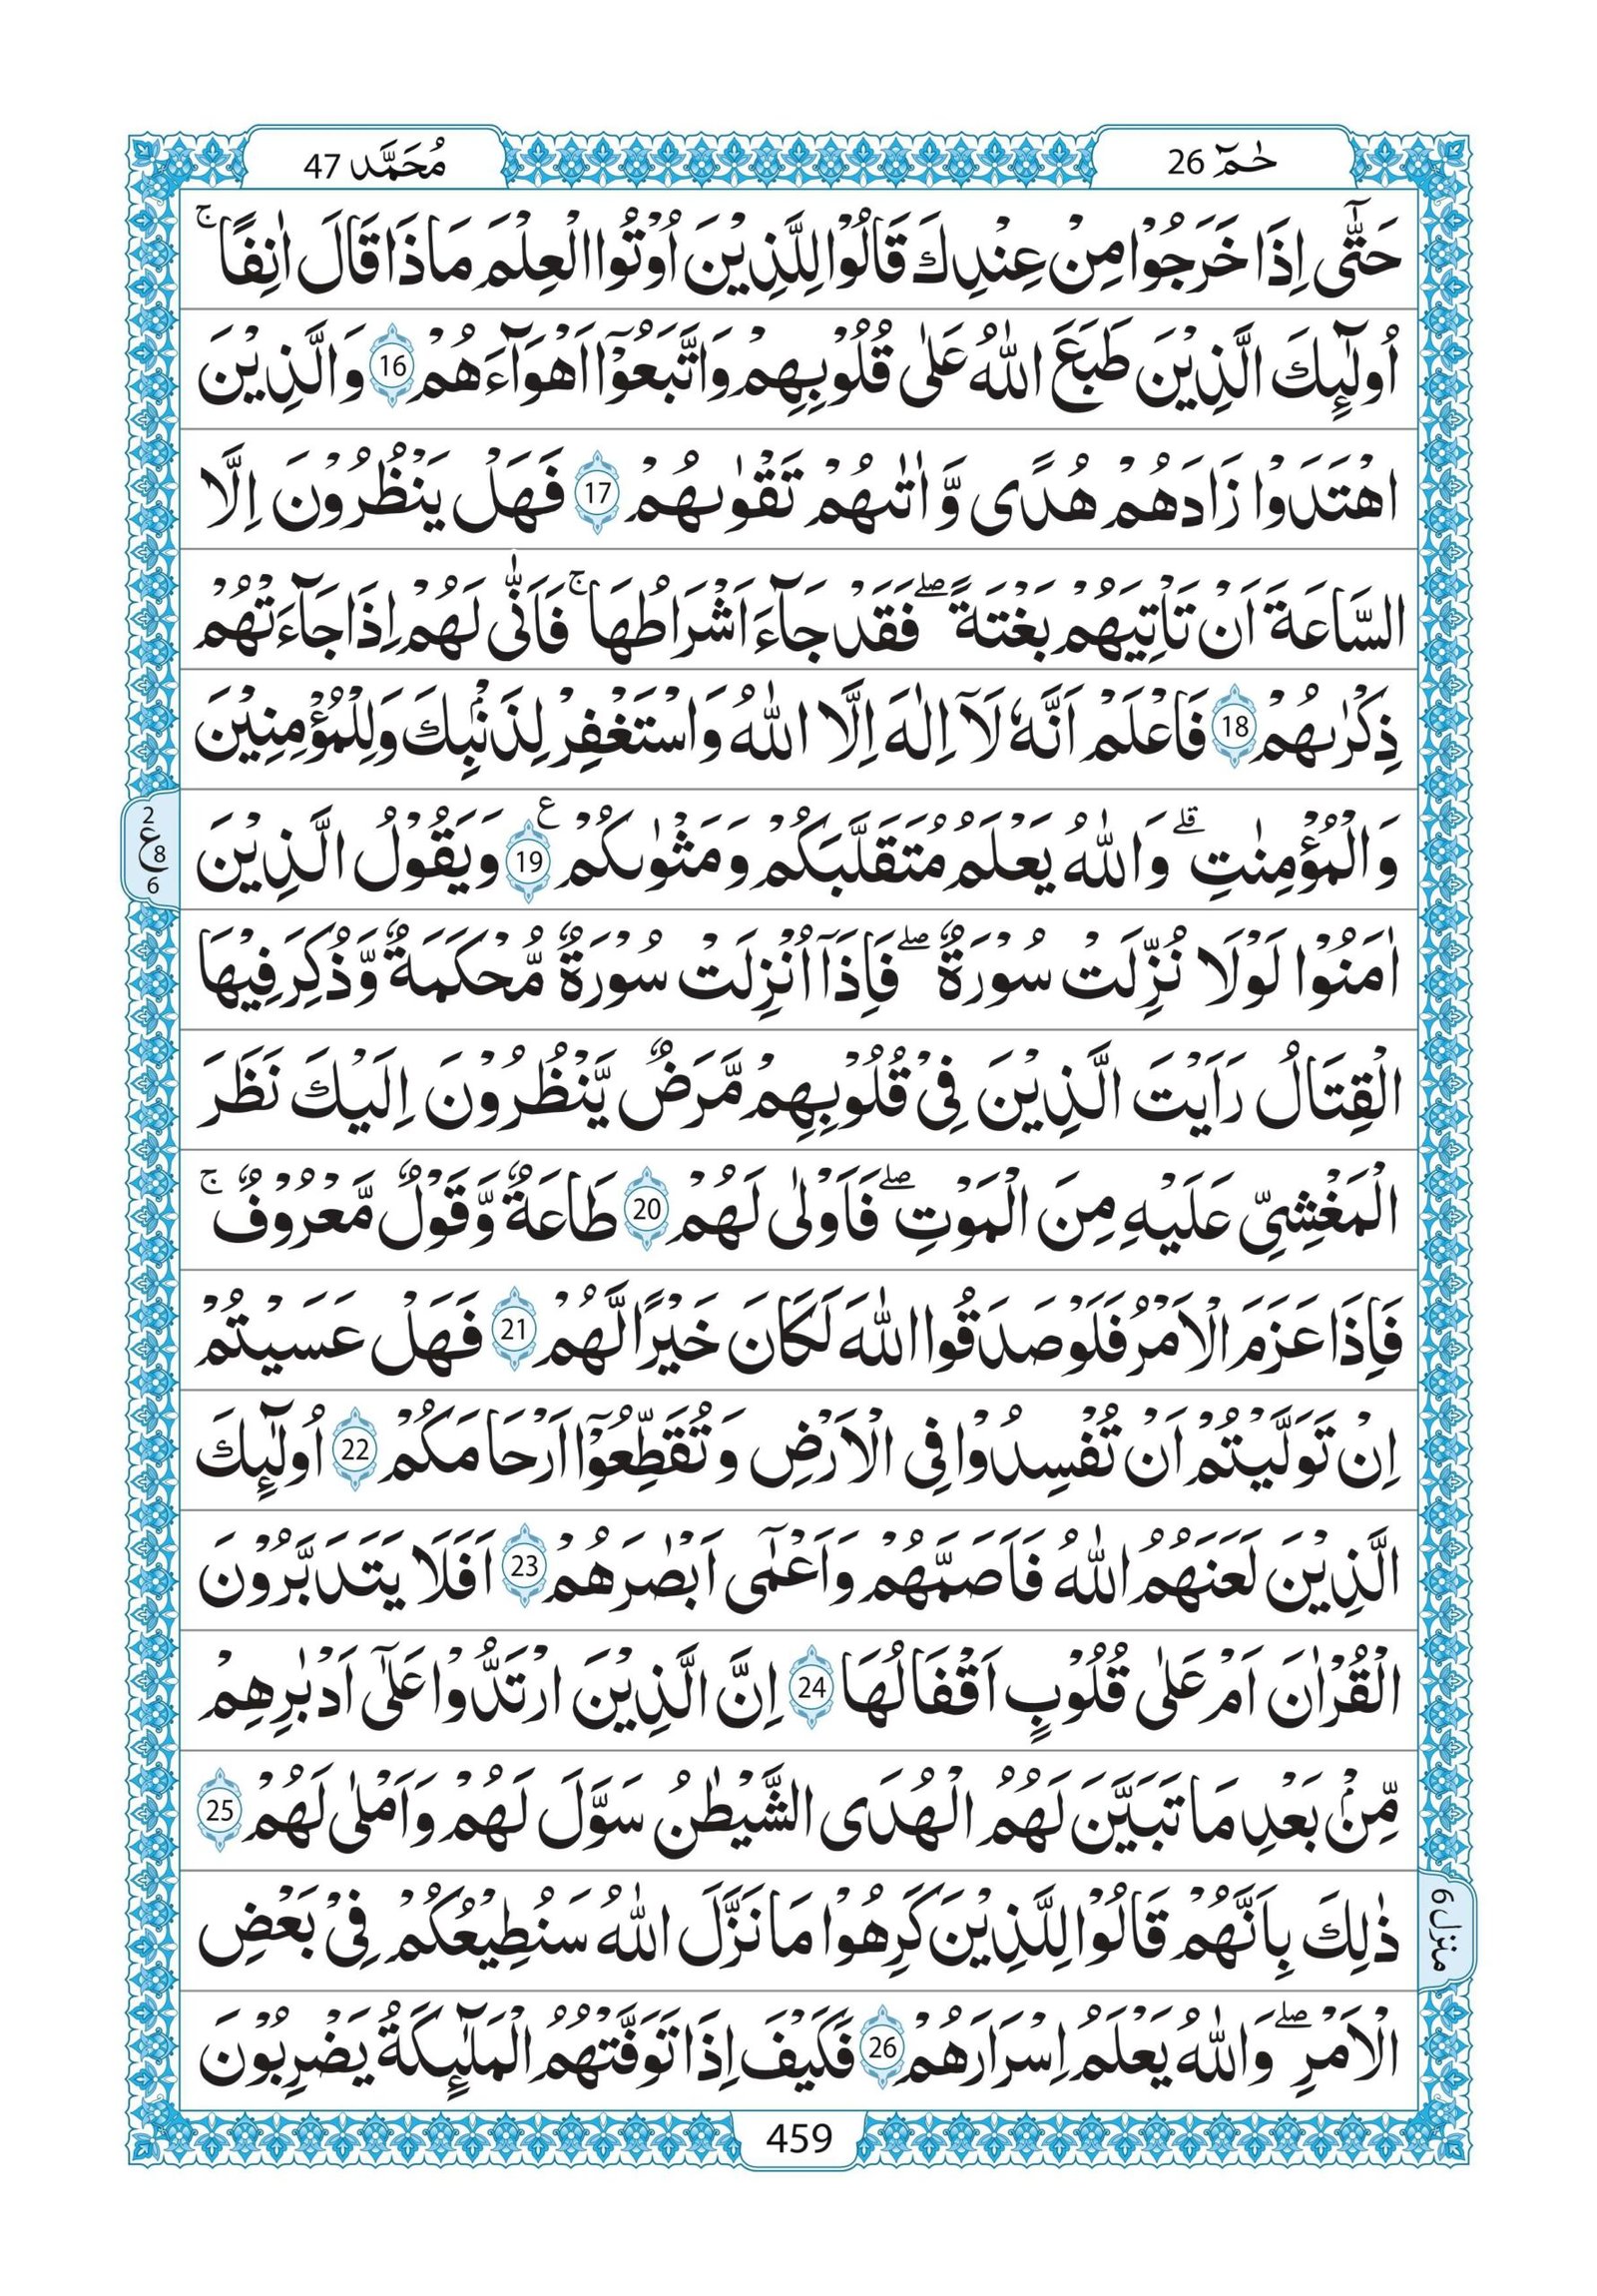 حٰمٓ 26
مُحَمَّد 47
حَتّٰٓى اِذَا خَرَجُوْا مِنْ عِنْدِكَ قَالُوْا لِلَّذِيْنَ اُوْتُوا الْعِلْمَ مَاذَا قَالَ اٰنِفًا ۚ
اُولٰٓئِكَ الَّذِيْنَ طَبَعَ اللّٰهُ عَلٰى قُلُوْبِهِمْ وَاتَّبَعُوْٓا اَهْوَآءَهُمْ 16 وَالَّذِيْنَ
اهْتَدَوْا زَادَهُمْ هُدًى وَّاٰتٰىهُمْ تَقْوٰىهُمْ 17 فَهَلْ يَنْظُرُوْنَ اِلَّا
السَّاعَةَ اَنْ تَاْتِيَهُمْ بَغْتَةً ۖ فَقَدْ جَآءَ اَشْرَاطُهَا ۚ فَاَنّٰى لَهُمْ اِذَا جَآءَتْهُمْ
ذِكْرٰىهُمْ 18 فَاعْلَمْ اَنَّهٗ لَآ اِلٰهَ اِلَّا اللّٰهُ وَاسْتَغْفِرْ لِذَنْۢبِكَ وَلِلْمُؤْمِنِيْنَ
وَالْمُؤْمِنٰتِ ۗ وَاللّٰهُ يَعْلَمُ مُتَقَلَّبَكُمْ وَمَثْوٰىكُمْ 19 ع وَيَقُوْلُ الَّذِيْنَ
2 ع 8 6
اٰمَنُوْا لَوْلَا نُزِّلَتْ سُوْرَةٌ ۖ فَاِذَآ اُنْزِلَتْ سُوْرَةٌ مُّحْكَمَةٌ وَّذُكِرَ فِيْهَا
الْقِتَالُ رَاَيْتَ الَّذِيْنَ فِيْ قُلُوْبِهِمْ مَّرَضٌ يَّنْظُرُوْنَ اِلَيْكَ نَظَرَ
الْمَغْشِيِّ عَلَيْهِ مِنَ الْمَوْتِ ۖ فَاَوْلٰى لَهُمْ 20 طَاعَةٌ وَّقَوْلٌ مَّعْرُوْفٌ ۚ
فَاِذَا عَزَمَ الْاَمْرُ فَلَوْ صَدَقُوا اللّٰهَ لَكَانَ خَيْرًا لَّهُمْ 21 فَهَلْ عَسَيْتُمْ
اِنْ تَوَلَّيْتُمْ اَنْ تُفْسِدُوْا فِى الْاَرْضِ وَتُقَطِّعُوْٓا اَرْحَامَكُمْ 22 اُولٰٓئِكَ
الَّذِيْنَ لَعَنَهُمُ اللّٰهُ فَاَصَمَّهُمْ وَاَعْمٰٓى اَبْصٰرَهُمْ 23 اَفَلَا يَتَدَبَّرُوْنَ
الْقُرْاٰنَ اَمْ عَلٰى قُلُوْبٍ اَقْفَالُهَا 24 اِنَّ الَّذِيْنَ ارْتَدُّوْا عَلٰٓى اَدْبٰرِهِمْ
مِّنْۢ بَعْدِ مَا تَبَيَّنَ لَهُمُ الْهُدَى الشَّيْطٰنُ سَوَّلَ لَهُمْ وَاَمْلٰى لَهُمْ 25
ذٰلِكَ بِاَنَّهُمْ قَالُوْا لِلَّذِيْنَ كَرِهُوْا مَا نَزَّلَ اللّٰهُ سَنُطِيْعُكُمْ فِيْ بَعْضِ
منزل 6
الْاَمْرِ ۖ وَاللّٰهُ يَعْلَمُ اِسْرَارَهُمْ 26 فَكَيْفَ اِذَا تَوَفَّتْهُمُ الْمَلٰٓئِكَةُ يَضْرِبُوْنَ
459